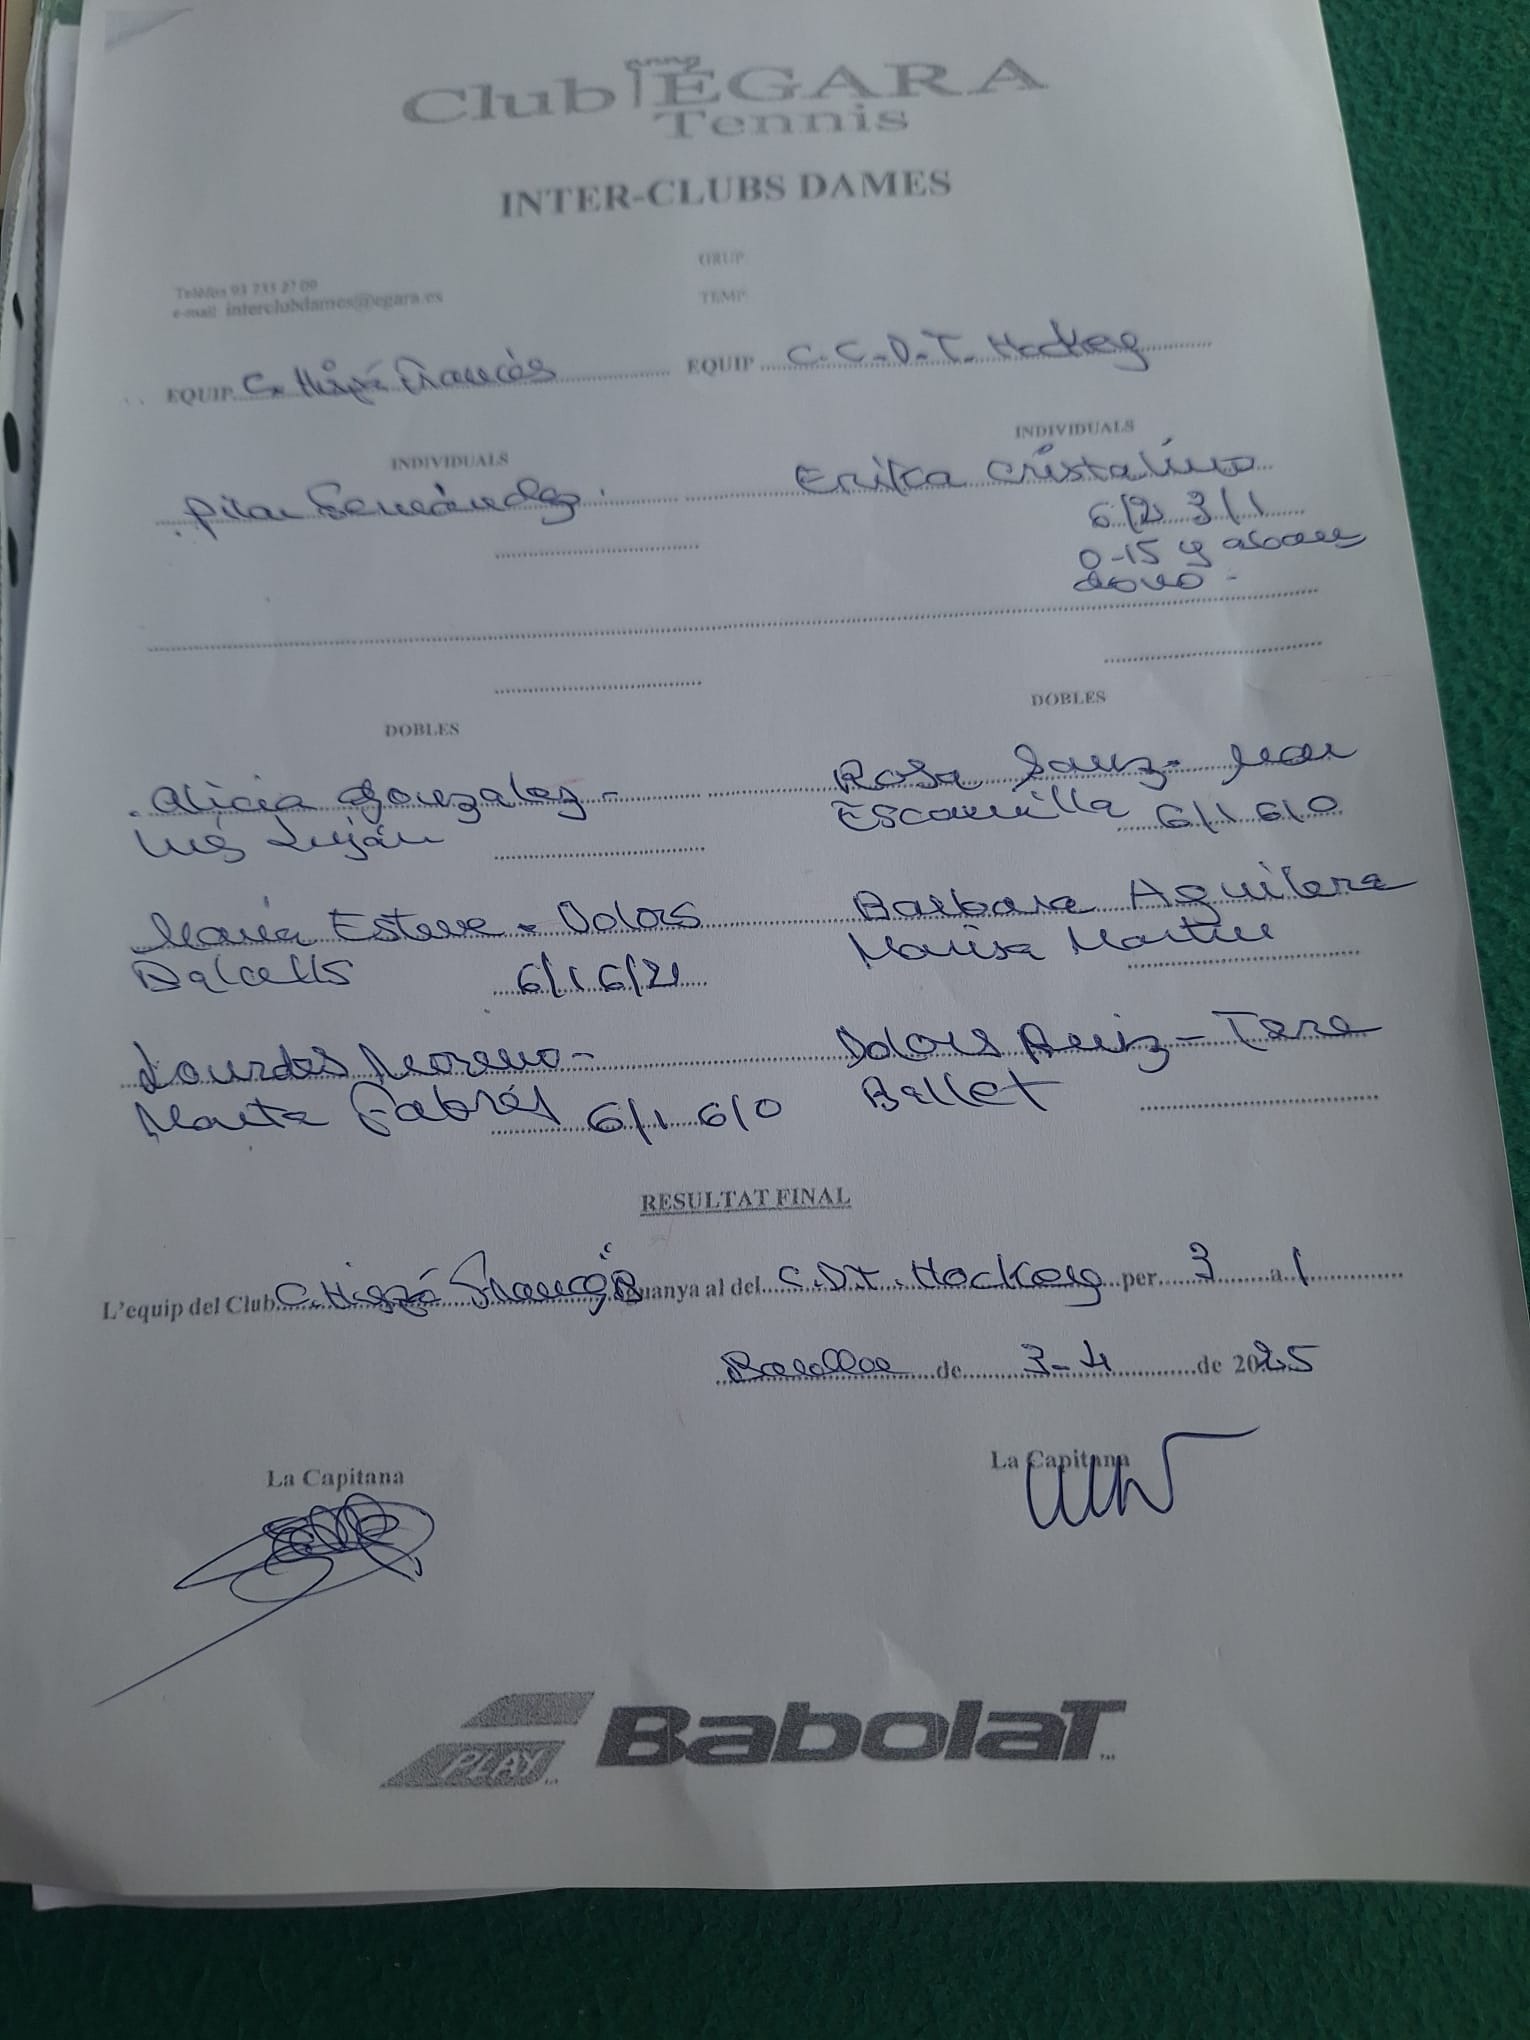 Club Egara
Tennis
INTER-CLUBS DAMES
GRUP
TEMP
Telèfon 93 735 27 09
e-mail: interclubdames@egara.es
EQUIP C. Hispà Francès EQUIP C.C.D.T. Hockey
INDIVIDUALS INDIVIDUALS
Pilar Fernández Erika Cristalino
6/2 3/1
0-15 y aban
donó -
DOBLES DOBLES
Alicia Gonzalez - Rosa Sanz - Mar
Inés Luján Escamilla 6/1 6/0
María Esteve - Dolors Barbara Aguilera
Balcells 6/1 6/2 Marisa Martin
Lourdes Moreno - Dolors Ruiz - Tere
Marta Fabrés 6/1 6/0 Ballet
RESULTAT FINAL
L'equip del Club C. Hispà Francès guanya al del C.D.T. Hockey per 3 a 1
de 3-4 de 2025
La Capitana La Capitana
PLAY BABOLAT